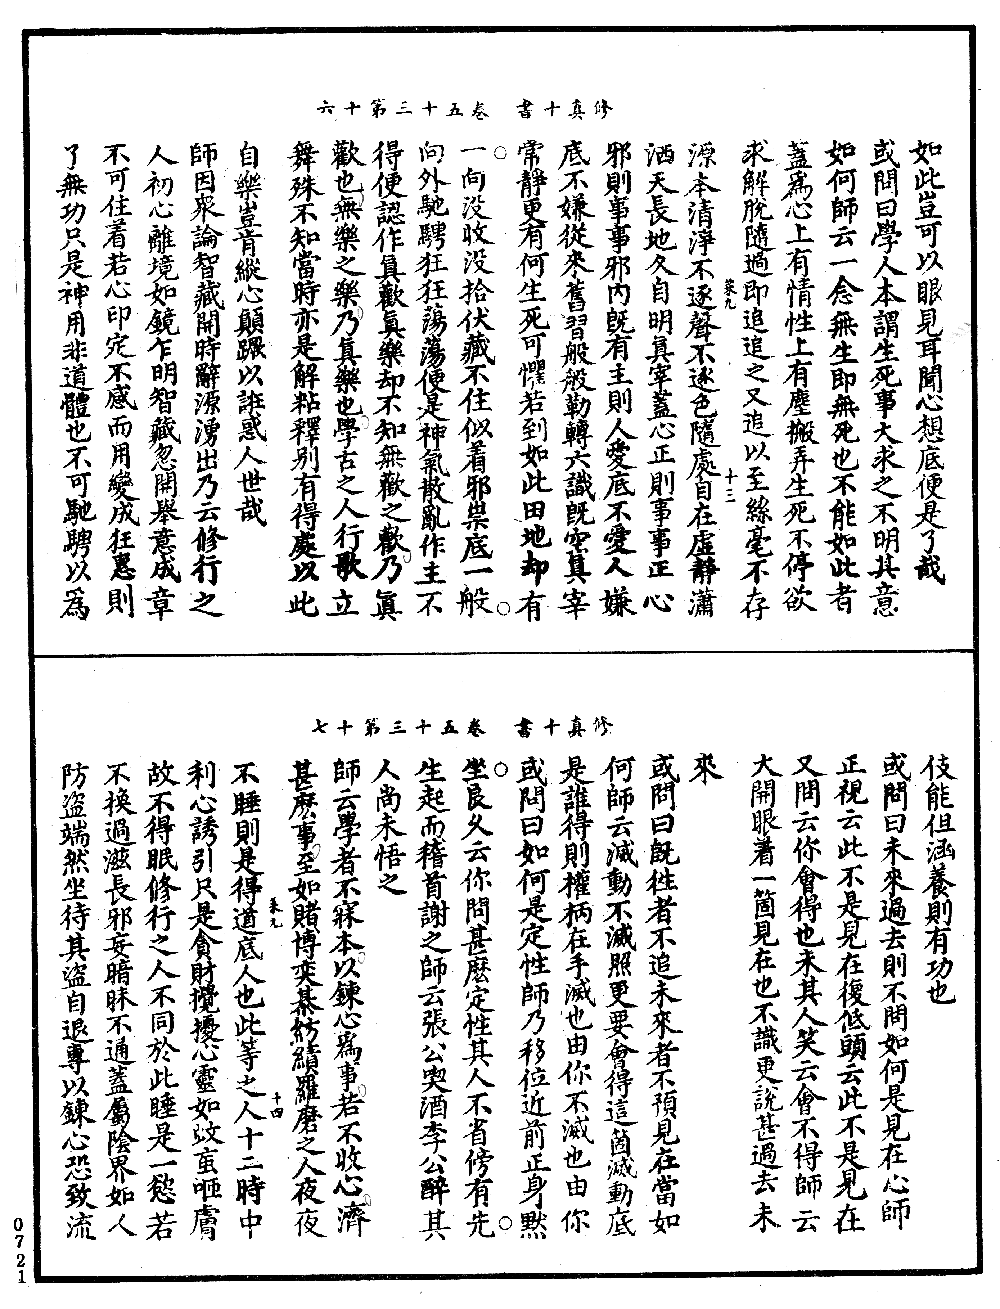 修真十書　卷五十三第十六
如此豈可以眼見耳聞心想底便是了哉
或問曰學人本謂生死事大求之不明其意
如何師云一念無生即無死也不能如此者
蓋爲心上有情性上有塵搬弄生死不停欲
求解脫隨過即追追之又追以至絲毫不存
菜九　十三
源本清淨不逐聲不逐色隨處自在虛靜瀟
洒天長地久自明真宰蓋心正則事事正心
邪則事事邪內既有主則人愛底不愛人嫌
底不嫌從來舊習般般勒轉六識既空真宰
常靜更有何生死可懼若到如此田地却有
○一向没收没拾伏藏不住似着邪祟底一般○
向外馳騁狂狂蕩蕩便是神氣散亂作主不
得便認作真歡真樂却不知無歡之歡乃真
歡也無樂之樂乃真樂也學古之人行歌立
舞殊不知當時亦是解粘釋别有得處以此
自樂豈肯縱心顛蹶以誑惑人世哉
師因衆論智藏開時辭源湧出乃云修行之
人初心離境如鏡乍明智藏忽開舉意成章
不可住着若心印定不感而用變成狂慧則
了無功只是神用非道體也不可馳騁以爲
修真十書　卷五十三第十七
伎能但涵養則有功也
或問曰未來過去則不問如何是見在心師
正視云此不是見在復低頭云此不是見在
又問云你會得也未其人笑云會不得師云
大開眼着一箇見在也不識更說甚過去未
來
或問曰既往者不追未來者不預見在當如
何師云滅動不滅照更要會得這箇滅動底
是誰得則權柄在手滅也由你不滅也由你
或問曰如何是定性師乃移位近前正身默
○坐良久云你問甚麽定性其人不省傍有先○
生起而稽首謝之師云張公喫酒李公醉其
人尚未悟之
師云學者不寐本以鍊心爲事若不收心濟
甚麽事至如賭博奕棊紡績羅磨之人夜夜
菜九　十四
不睡則是得道底人也此等之人十二時中
利心誘引只是貪財攪擾心靈如蚊䖟咂膚
故不得眠修行之人不同於此睡是一慾若
不換過滋長邪妄暗昧不通蓋屬陰界如人
防盜端然坐待其盜自退專以鍊心恐致流
0721